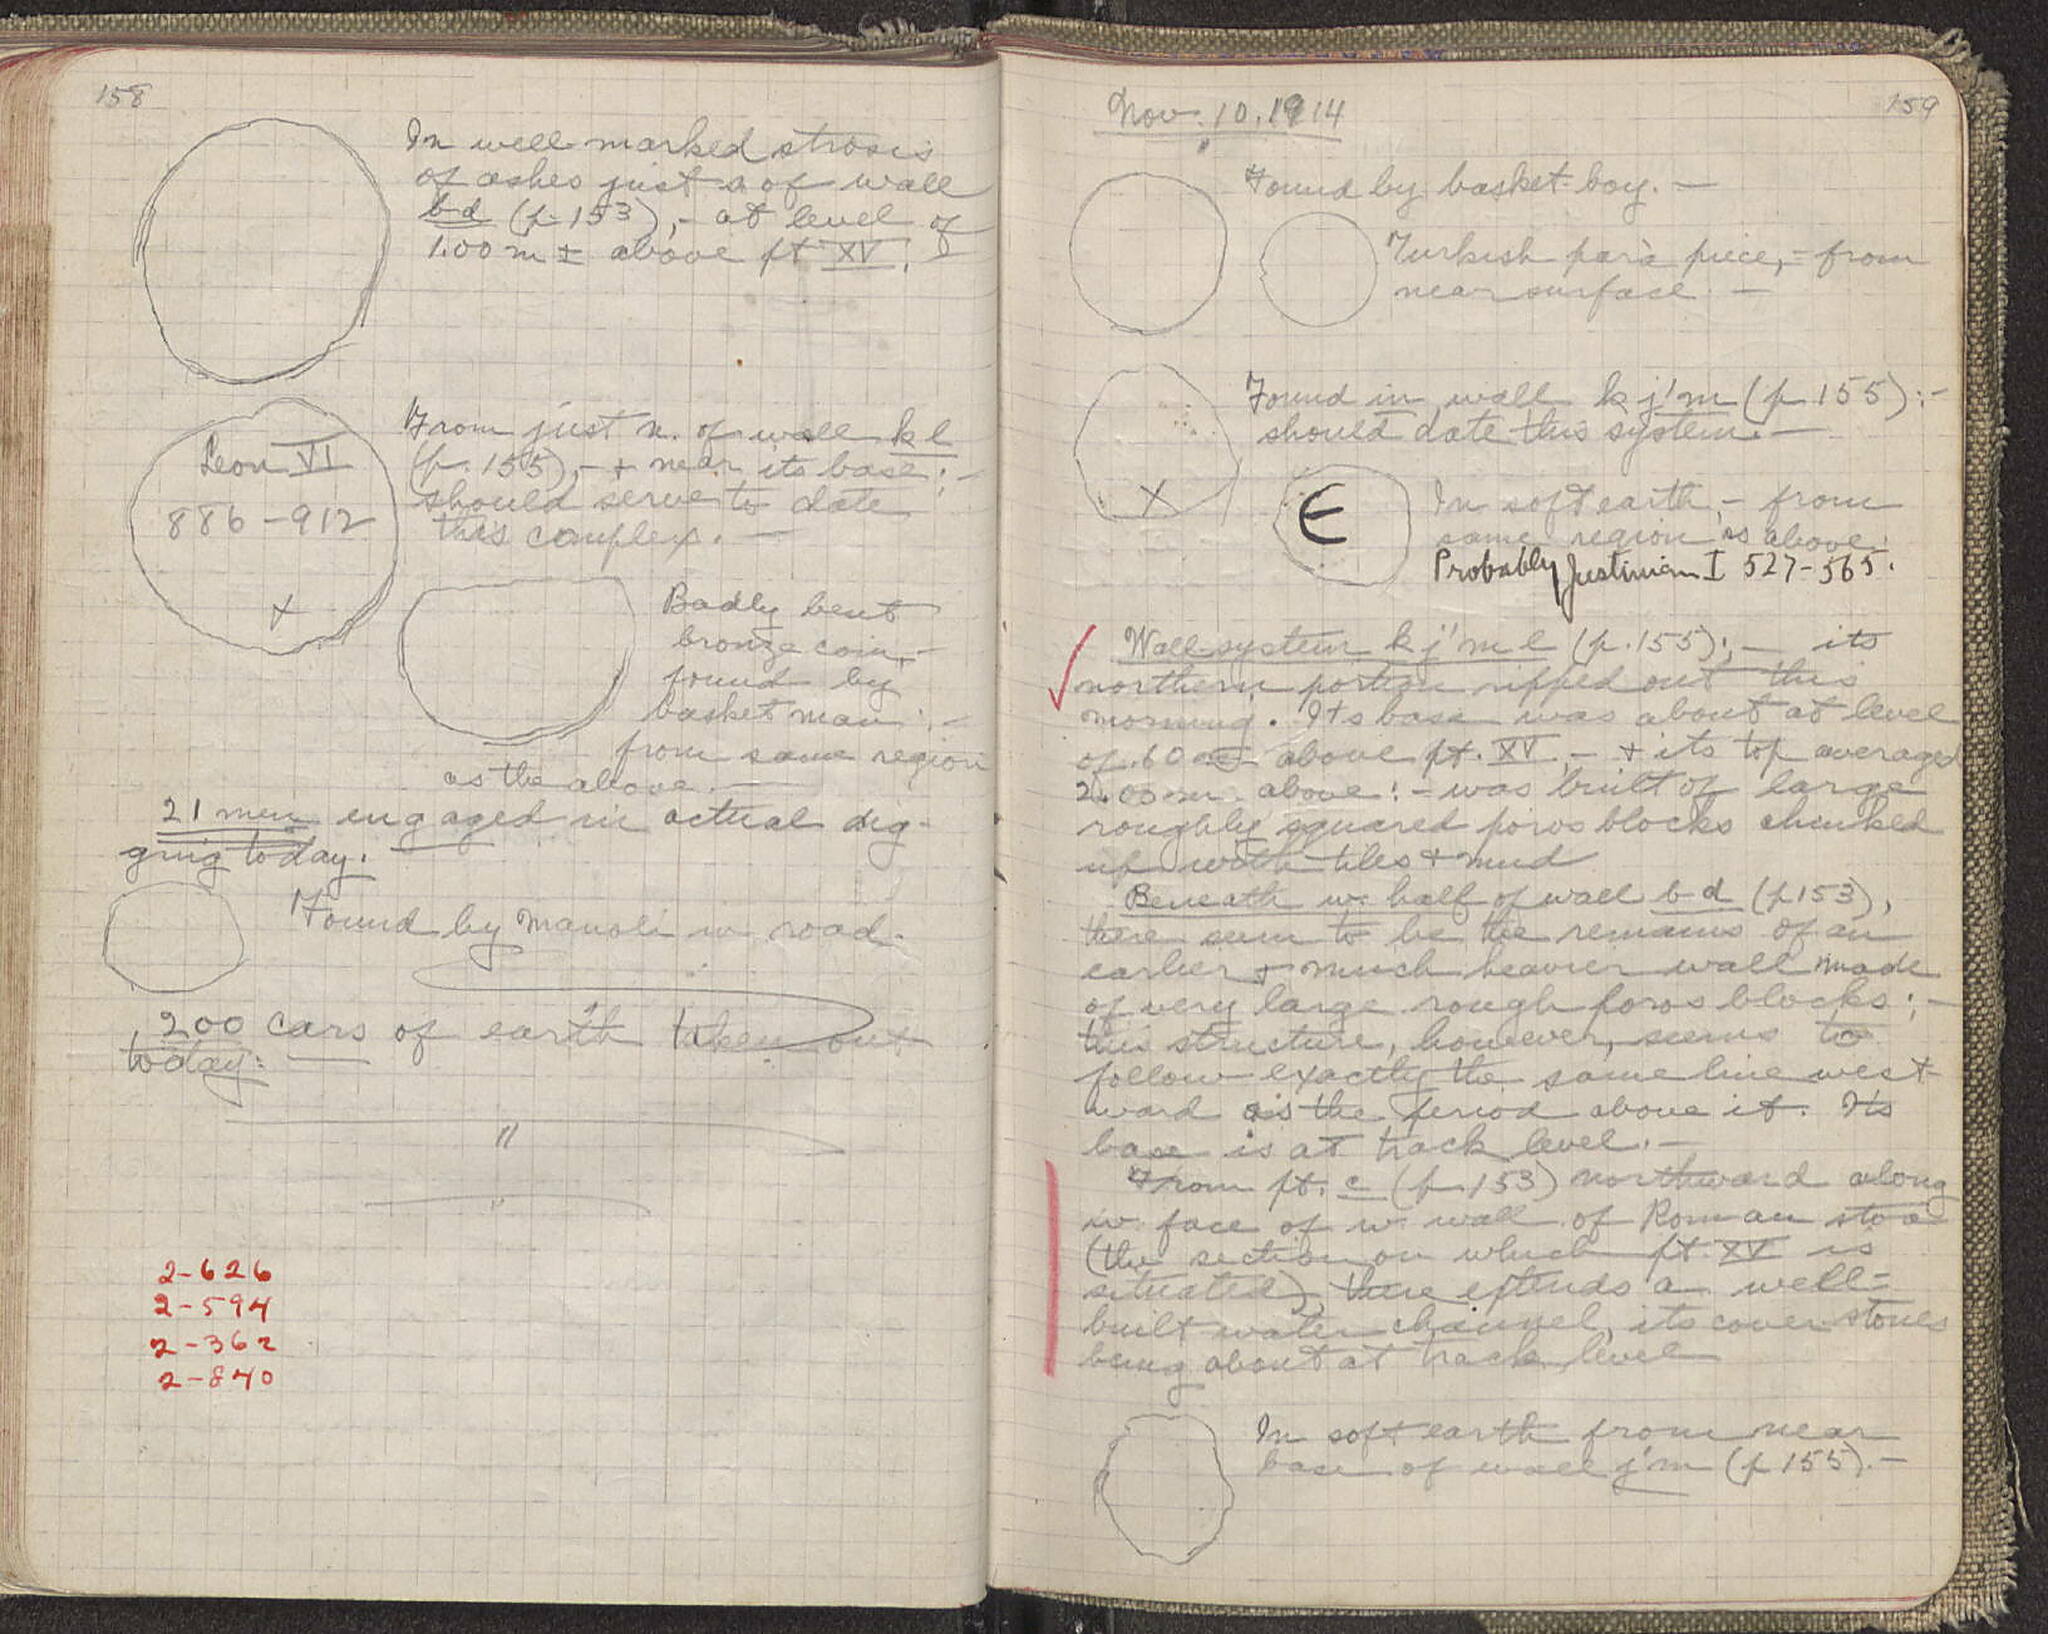 158
In well-marked strosis
of ashes just s. of wall
bd (p. 153), - at level of
1.00 m ± above pt XV.
Leon VI
886 - 912
+
From just n. of wall kl
(p. 155), - + near its base; -
should serve to date
this complex. -
Badly bent
bronze coin, -
found by
basket man; -
from same region
as the above. -
21 men engaged in actual dig-
ging today.
Found by Manoli in road.
200 cars of earth taken out
today.
"
"
2-626
2-594
2-362
2-840
159
Nov. 10. 1914
Found by basket-boy. -
Turkish para piece, - from
near surface. -
Found in wall k j'm (p. 155): -
should date this system. -
X
E
In soft earth, - from
same region as above.
Probably Justinian I 527-565.
Wall-system k j' m l (p. 155); - its
northern portion ripped out this
morning. Its base was about at level
of .60 m above pt. XV, - + its top averaged
2.00 m. above: - was built of large
roughly squared poros blocks chinked
up with tiles + mud
Beneath w. half of wall b-d (p 153),
there seem to be the remains of an
earlier + much heavier wall made
of very large rough poros blocks; -
this structure, however, seems to
follow exactly the same line west-
ward as the period above it. Its
base is at track level. -
From pt. c (p. 153) northward along
w. face of w. wall of Roman stoa
(the section on which pt. XV is
situated), there extends a well-
built water channel, its cover stones
being about at track level
In soft earth from near
base of wall j'm (p 155). -